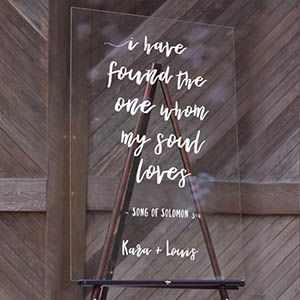 i have
found the
one whom
my soul
loves
- SONG OF SOLOMON 3:4
Kara + Louis